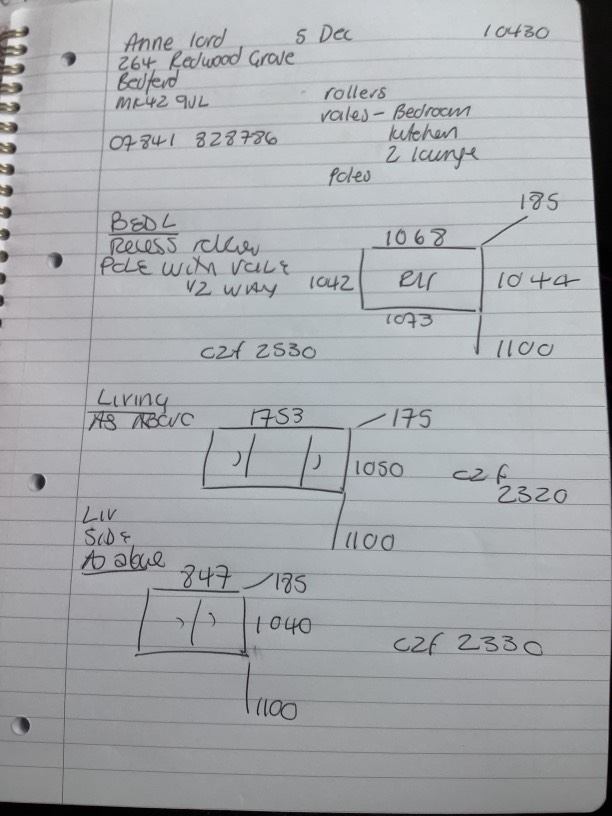 Anne lord 5 Dec 10430
264 Redwood Grove
Bedford
MK42 9UL
rollers
vales - Bedroom
kitchen
2 lounge
07841 828786
Poles
185
BEDL
1068
Recess roller
POLE WITH VALE
1/2 WAY
1042
1044
1073
1100
C2f 2530
Living
AS ABOVE
1753
175
1050
C2f
2320
LIV
SIDE
1100
As above
847
185
1040
C2f 2330
1100